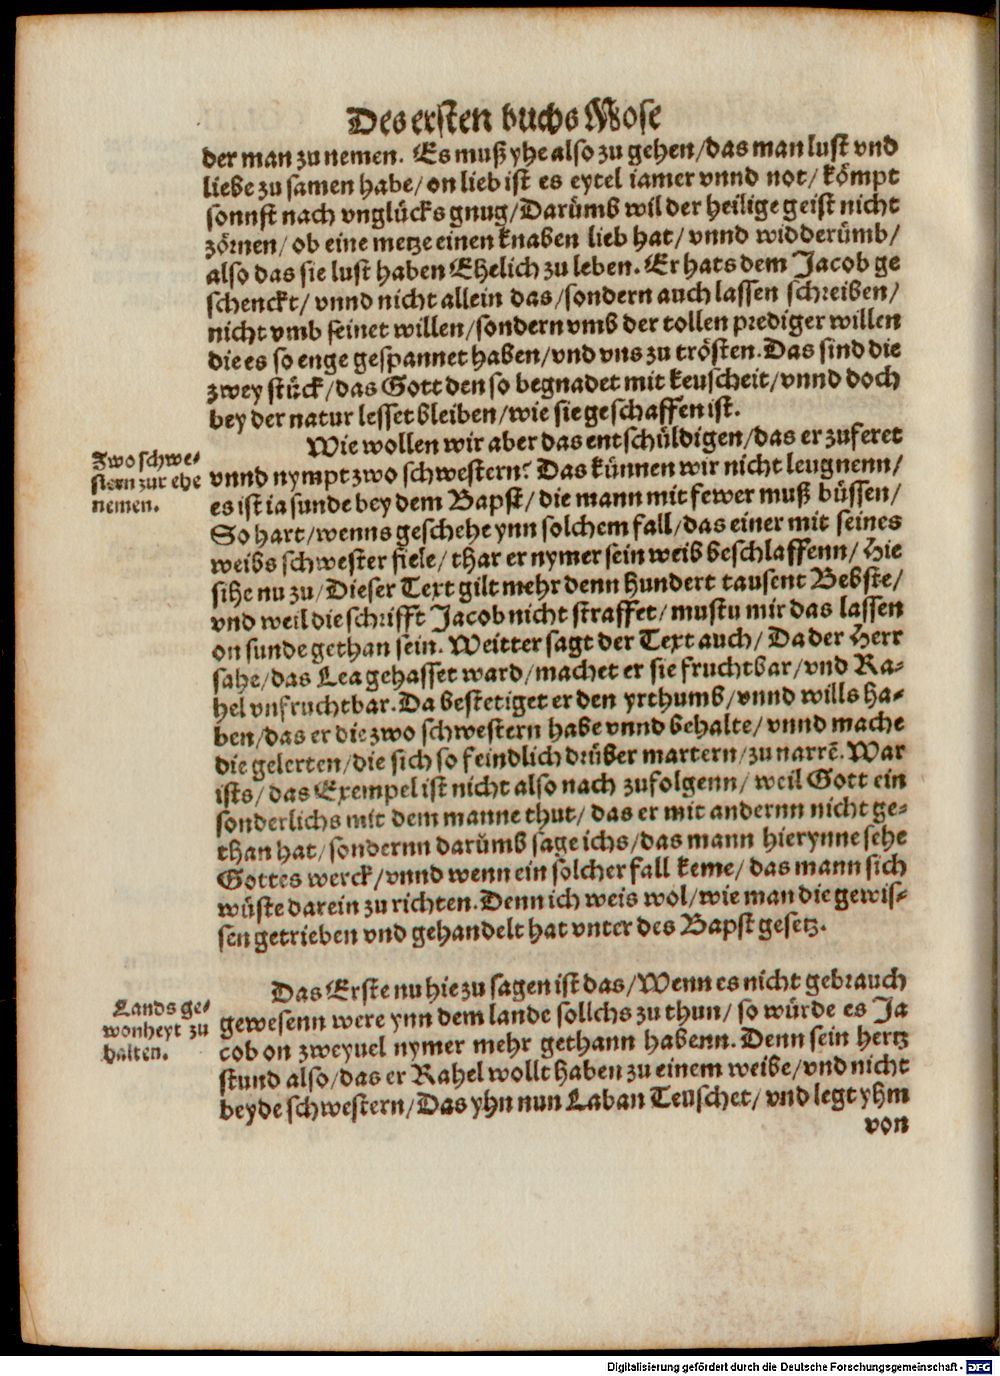 Des ersten buchs Mose
der man zu nemen. Es muß yhe also zu gehen/das man lust vnd
liebe zu samen habe/on lieb ist es eytel iamer vnnd not/kömpt
sonnst nach vnglücks gnug/Darümb wil der heilige geist nicht
zörnen/ob eine metze einen knaben lieb hat/vnnd widderümb/
also das sie lust haben Ehelich zu leben. Er hats dem Jacob ge
schenckt/vnnd nicht allein das/sondern auch lassen schreiben/
nicht vmb seinet willen/sondern vmb der tollen prediger willen
die es so enge gespannet haben/vnd vns zu trösten. Das sind die
zwey stück/das Gott den so begnadet mit keuscheit/vnnd doch
bey der natur lesset bleiben/wie sie geschaffen ist.
Zwo schwe-
stern zur ehe
nemen.
Wie wollen wir aber das entschüldigen/das er zuferet
vnnd nympt zwo schwestern? Das künnen wir nicht leugnenn/
es ist ia sunde bey dem Bapst/die mann mit fewer muß büssen/
So hart/wenns geschehe ynn solchem fall/das einer mit seines
weibs schwester fiele/thar er nymer sein weib beschlaffenn/Hie
sihe nu zu/Dieser Text gilt mehr denn hundert tausent Bebste/
vnd weil die schrifft Jacob nicht straffet/mustu mir das lassen
on sunde gethan sein. Weitter sagt der Text auch/Da der Herr
sahe/das Lea gehasset ward/machet er sie fruchtbar/vnd Ra-
hel vnfruchtbar. Da bestetiget er den yrthumb/vnnd wills ha-
ben/das er die zwo schwestern habe vnnd behalte/vnnd mache
die gelerten/die sich so feindlich drüber martern/zu narrē. War
ists/das Exempel ist nicht also nach zufolgenn/weil Gott ein
sonderlichs mit dem manne thut/das er mit andernn nicht ge-
than hat/sondernn darümb sage ichs/das mann hierynne sehe
Gottes werck/vnnd wenn ein solcher fall keme/das mann sich
wüste darein zu richten. Denn ich weis wol/wie man die gewis-
sen getrieben vnd gehandelt hat vnter des Bapst gesetz.
Lands ge-
wonheyt zu
halten.
Das Erste nu hie zu sagen ist das/Wenn es nicht gebrauch
gewesenn were ynn dem lande sollchs zu thun/so würde es Ja
cob on zweyuel nymer mehr gethann habenn. Denn sein hertz
stund also/das er Rahel wollt haben zu einem weibe/vnd nicht
beyde schwestern/Das yhn nun Laban Teuschet/vnd legt yhm
von
Digitalisierung gefördert durch die Deutsche Forschungsgemeinschaft - DFG